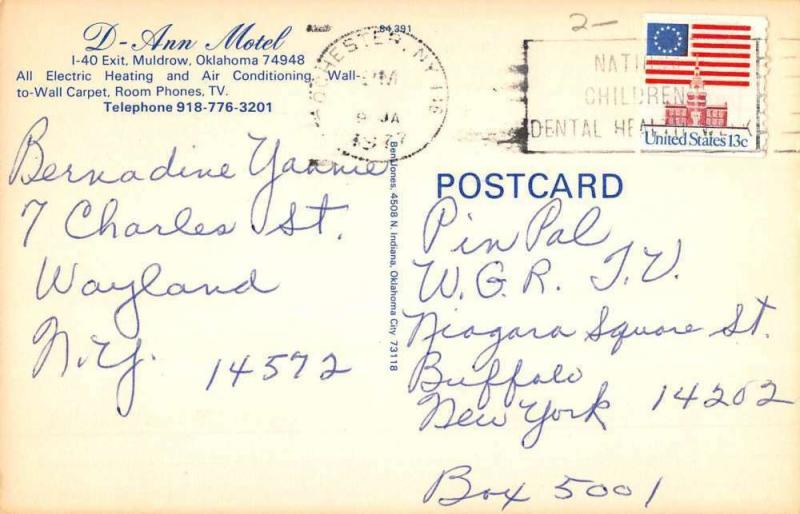 D-Ann Motel
I-40 Exit, Muldrow, Oklahoma 74948
All Electric Heating and Air Conditioning, Wall-
to-Wall Carpet, Room Phones, TV.
Telephone 918-776-3201
84,391
ROCHESTER, NY
PM
9 JA
1977
2-
CHILDREN
DENTAL
United States 13c
POSTCARD
Ben Jones, 4508 N. Indiana, Oklahoma City 73118
Bernadine Yannie
7 Charles St.
Wayland
N.Y. 14572
Pin Pal
W.G.R. T.V.
Niagara Square St.
Buffalo
New York 14202
Box 5001